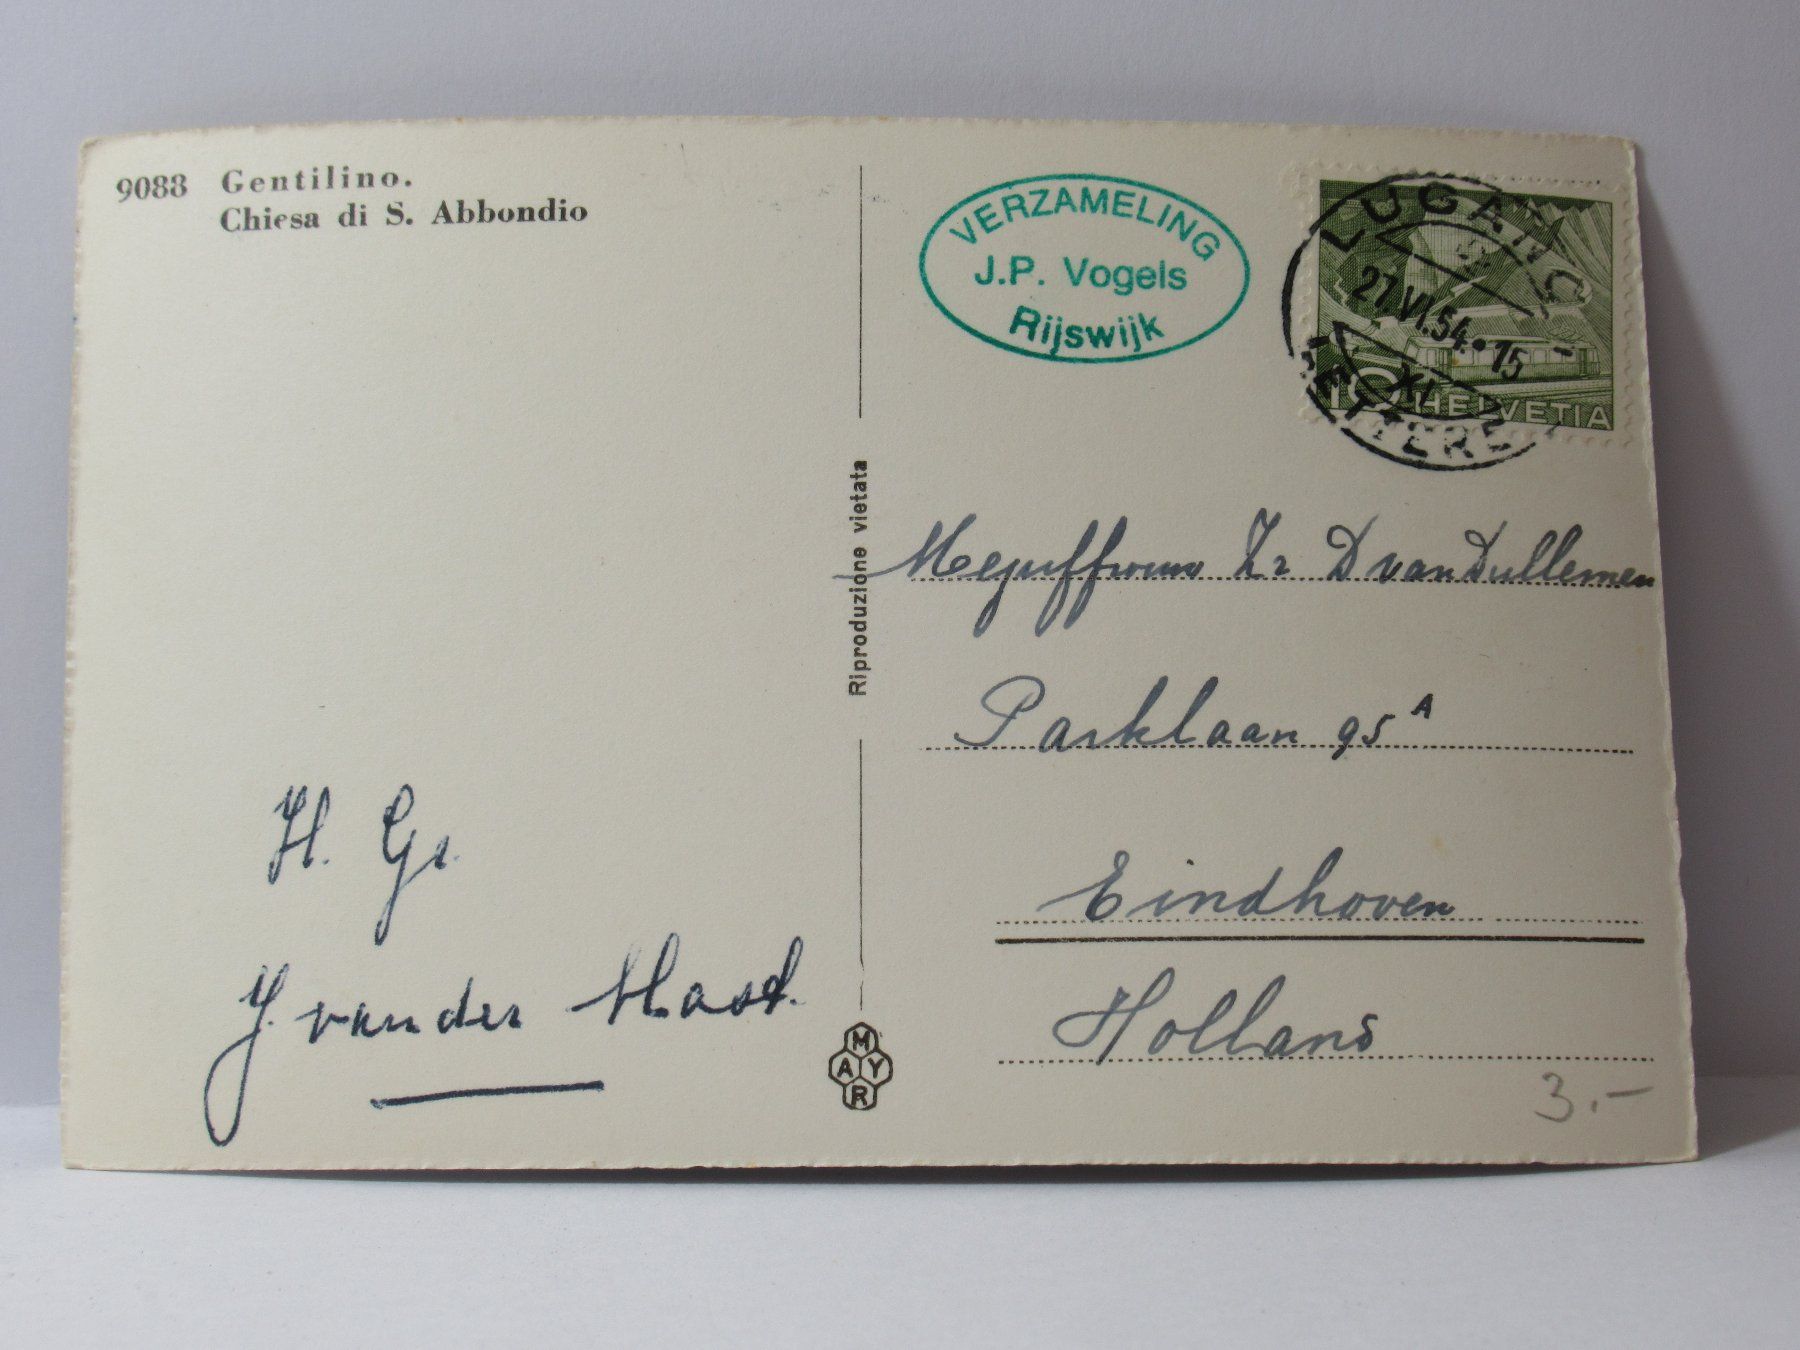 9088 Gentilino.
Chiesa di S. Abbondio
VERZAMELING
J.P. Vogels
Rijswijk
LUGANO
27.VI.54.•15
XI
LETTERE
10 HELVETIA
Riproduzione vietata
Mejuffrouw Zr D van Dullemen
Parklaan 95 A
Eindhoven
Holland
H. Gr.
J. van der
MAYR
3.-